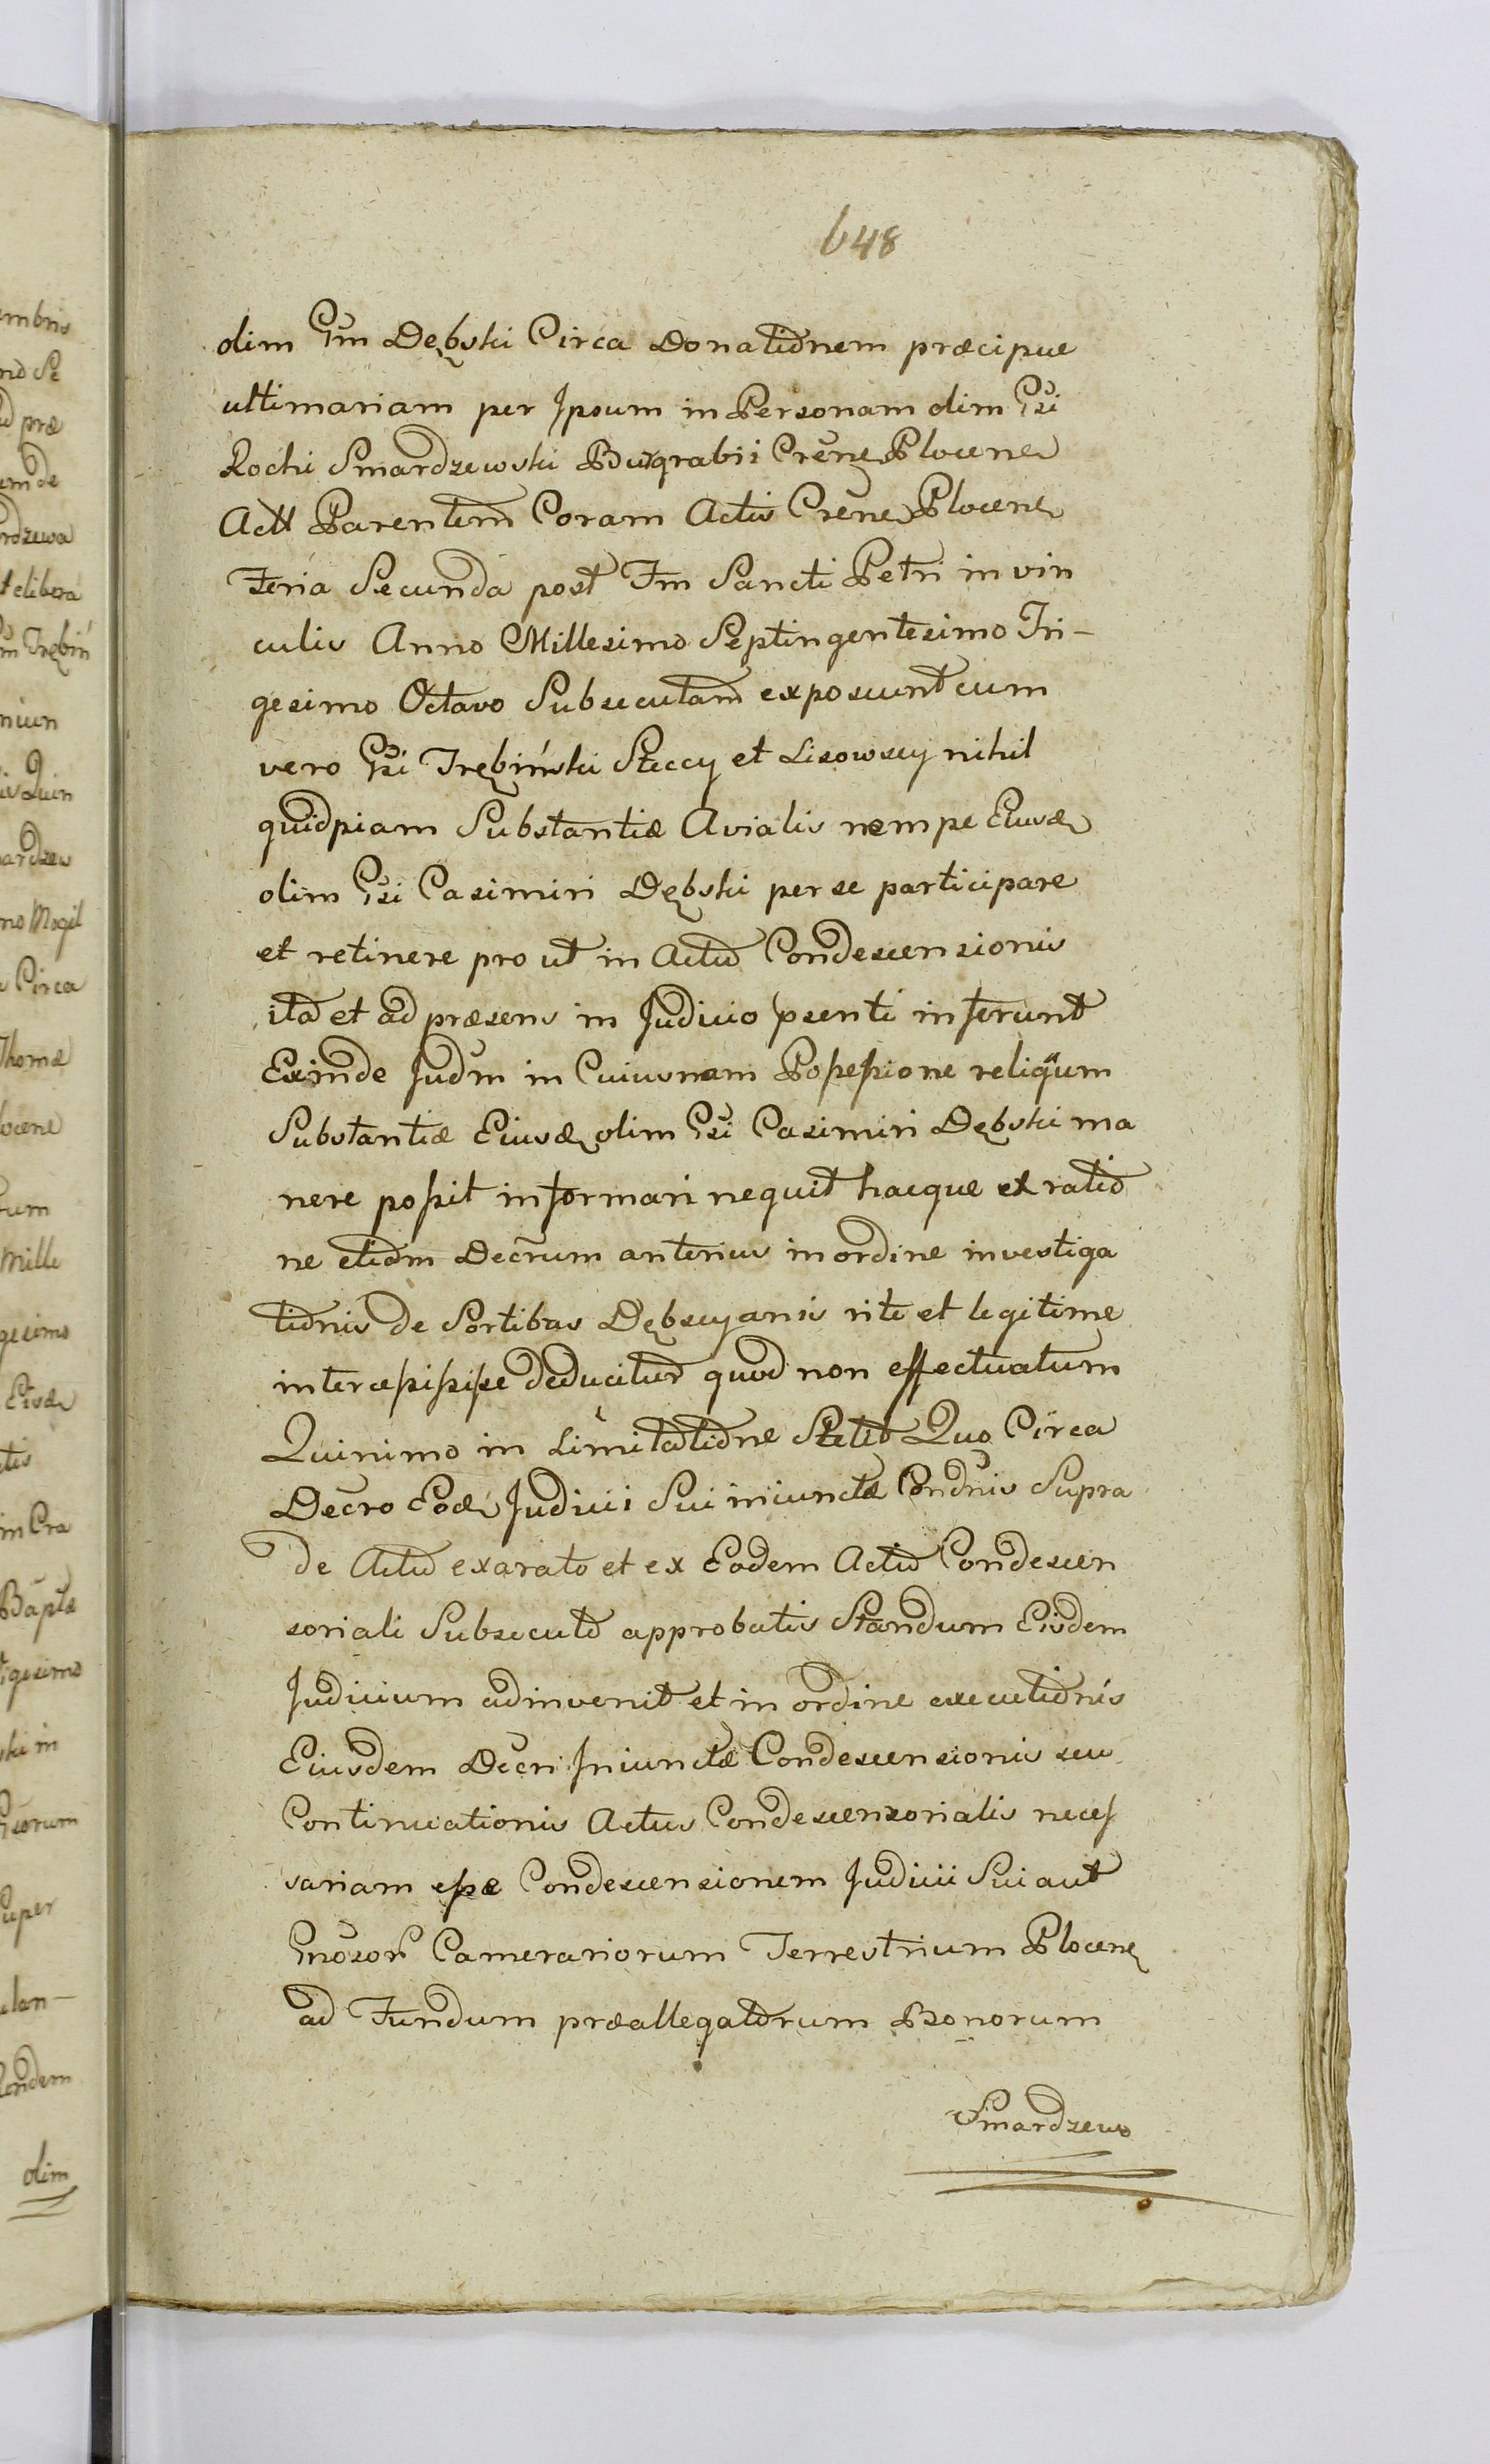 648
olim Gsm Dębski Circa Donationem præcipue
ultimariam per Ipsum in Personam olim Gsi
Rochi Smardzewski Burgrabii Crenę Plocenę
Actt Parentem Coram Actis Crenę Plocenę
Feria Secunda post Fm Sancti Petri in vin
culis Anno Millesimo Septingentesimo Tri-
gesimo Octavo Subsecutam exposcunt cum
vero Gsi Trębiński Steccy et Lisowscy nihil
quidpiam Substantiæ Avialis nempe Eiusdę
olim Gsi Casimiri Dębski per se participare
et retinere pro ut in Actu Condescensionis
ita et ad præsens in Judicio psenti inferunt
Exinde Judm in Cuiusnam Possessione reliquum
Substantiæ Eiusdę olim Gsi Casimiri Dębski ma
nere possit informari nequit hacque ex ratio
ne etiam Decrum anterius in ordine investiga
tionis de Sortibus Dębscyanis rite et legitime
intercessisse deducitur quod non effectuatum
Quinimo in Limitatione Stetit Quo Circa
Decro Eodę Judicii Sui iniunctæ Condnis Supra
de Actu exarato et ex Eodem Actu Condescen
soriali Subsecuto approbatis Standum Eisdem
Judicium adinvenit et in ordine executionis
Eiusdem Decri Iniunctæ Condescensionis seu
Continuationis Actus Condescensorialis neces
sariam esse Condescensionem Judicii Sui aut
Gnosor Camerariorum Terrestrium Plocenę
ad Fundum præallegatorum Bonorum
Smardzewo
embris
no Se
præ
emde
rdzewa
Trębiń
niun
Quin
ardzew
no Mogil
Circa
Thomæ
ocene
Mille
gesimo
Eiusdę
ctis
in Cra
Bapta
igesimo
ski in
Gsorum
Super
olim